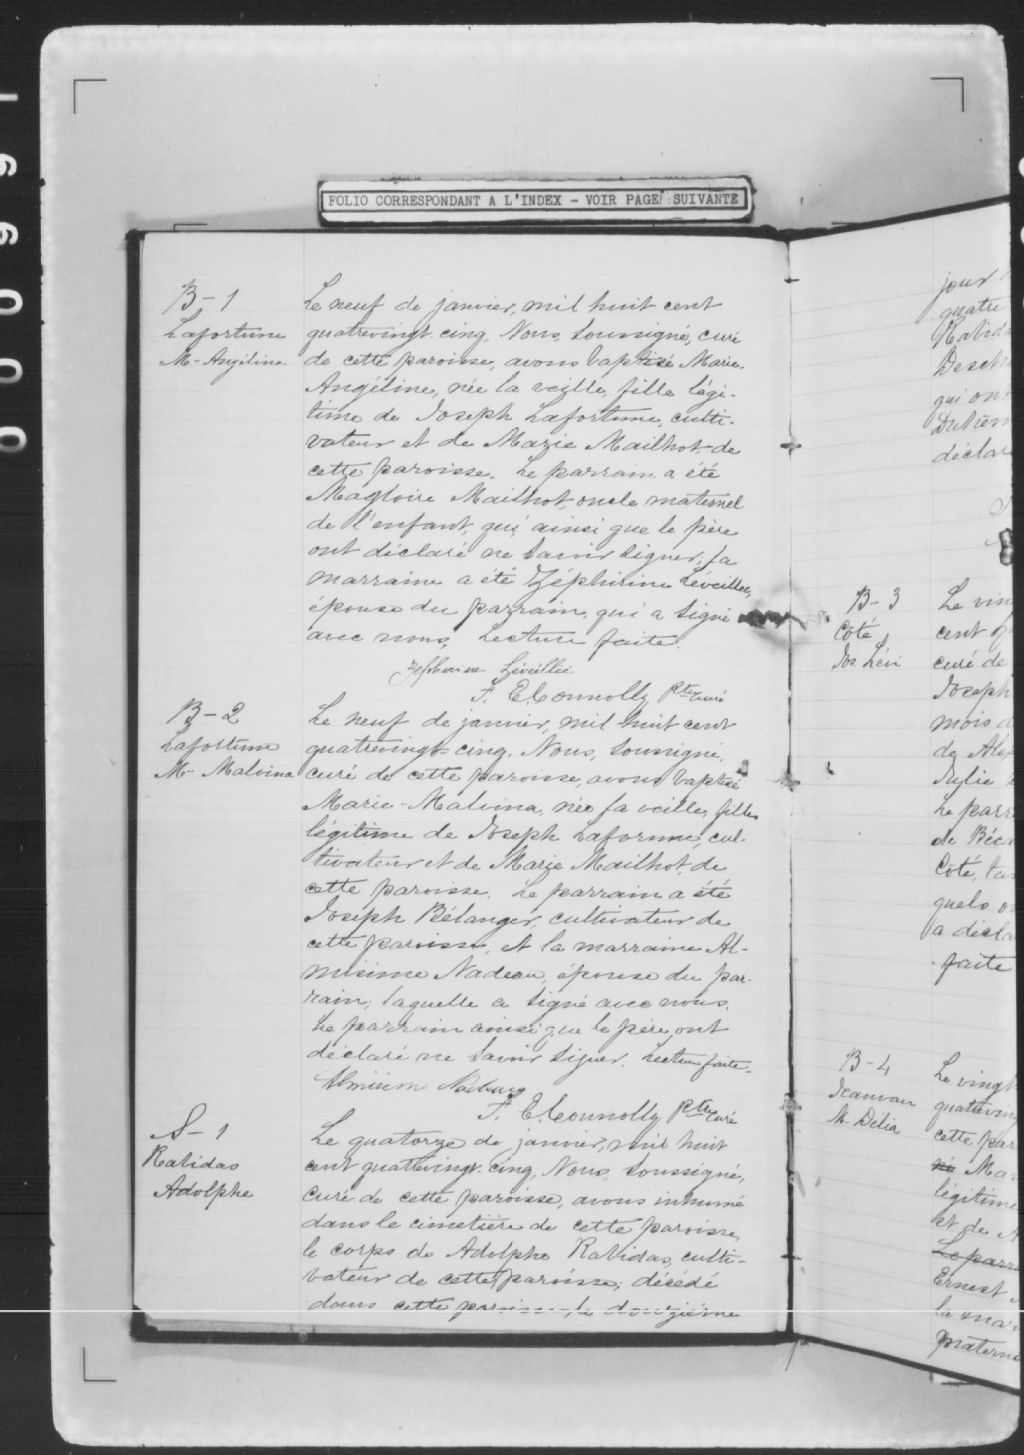 FOLIO CORRESPONDANT A L'INDEX - VOIR PAGE SUIVANTE
B-1
Lafortune
M-Angélina
Le neuf de janvier, mil huit cent
quatrevingt-cinq, Nous, soussigné, curé
de cette paroisse, avons baptisé Marie-
Angéline, née la veille, fille légi-
time de Joseph Lafortune, culti-
vateur et de Marie Mailhot de
cette paroisse. Le parrain a été
Magloire Mailhot, oncle maternel
de l'enfant, qui ainsi que le père
ont déclaré ne savoir signer; la
marraine a été Zéphirine Léveillée,
épouse du parrain, qui a signé
avec nous, Lecture faite.
Zephirine Léveillée
F. E. Connolly Ptre curé
B-2
Lafortune
M- Malvina
Le neuf de janvier, mil huit cent
quatrevingt-cinq, Nous, soussigné,
curé de cette paroisse, avons baptisé
Marie-Malvina, née la veille, fille
légitime de Joseph Lafortune, cul-
tivateur et de Marie Mailhot, de
cette paroisse. Le parrain a été
Joseph Bélanger, cultivateur de
cette paroisse, et la marraine Al-
misime Nadeau, épouse du par-
rain, laquelle a signé avec nous.
Le parrain ainsi que le père, ont
déclaré ne savoir signer. Lecture faite.
F. E. Connolly Ptre curé
S-1
Rabidas
Adolphe
Le quatorze de janvier, mil huit
cent quatrevingt-cinq, Nous, soussigné,
curé de cette paroisse, avons inhumé
dans le cimetière de cette paroisse,
le corps de Adolphe Rabidas, culti-
vateur de cette paroisse, décédé
dans cette paroisse, le douzième
jour
quatre
qui ont
déclar
B-3
Côté
Jos. Lévi
Le vin
cent q
curé de
Joseph
mois d
de Alex
Julie
Le parr
de Béca
Côté, ta
quels o
a décla
faite
B-4
Jeanvau
M. Délia
Le vingt
quatreving
cette par
né Mar
légitime
et de
Le parra
Ernest
la mar
paterne